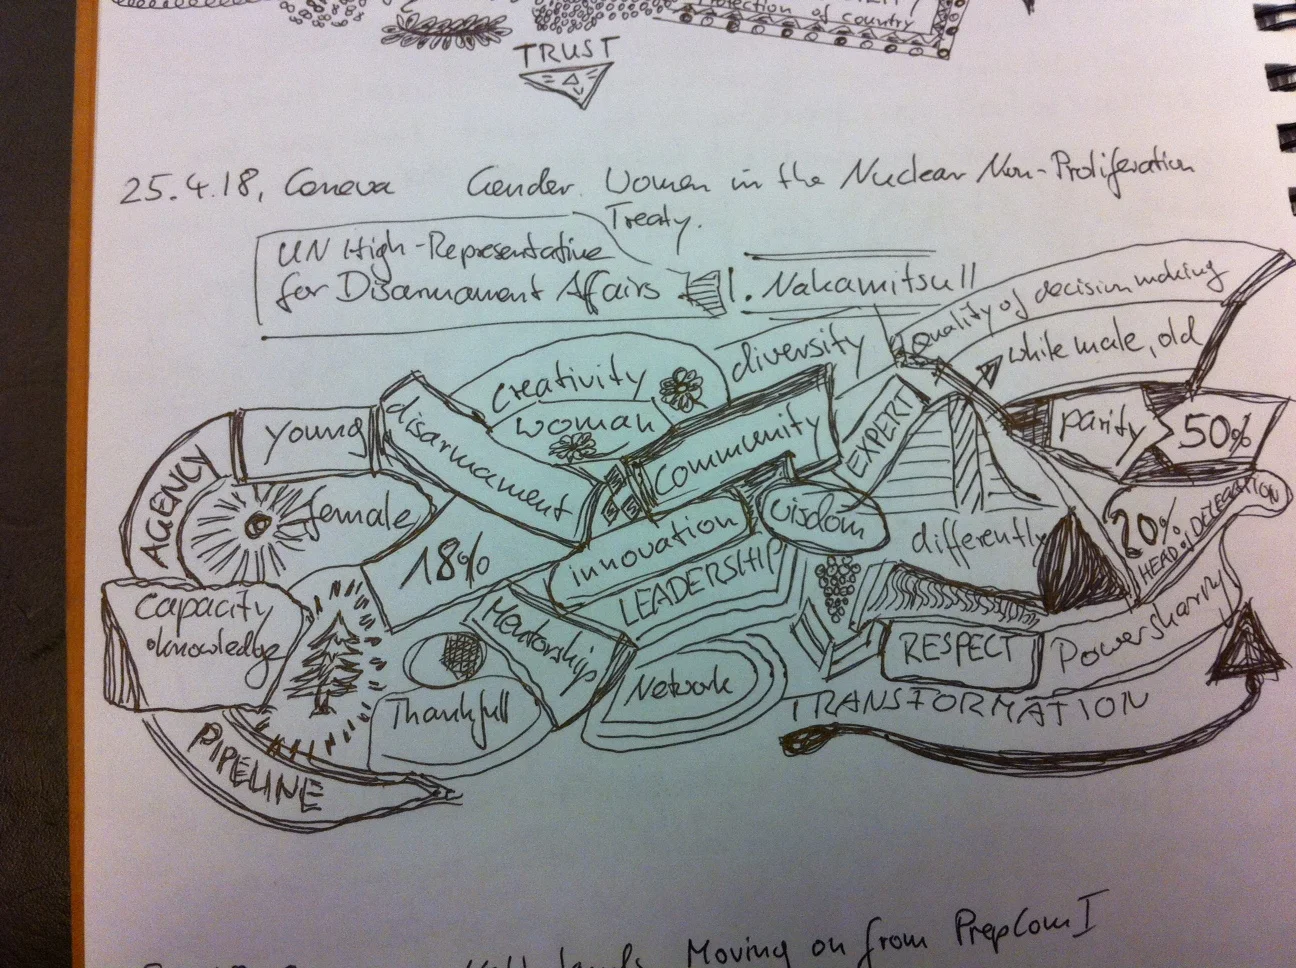 Protection of country
TRUST
25.4.18, Geneva Gender. Women in the Nuclear Non-Proliferation
Treaty.
UN High-Representative
for Disarmament Affairs I. Nakamitsu
Quality of decision making
white male, old
diversity
creativity
woman
disarmament
young
AGENCY
female
community
EXPERT
parity 50%
wisdom
innovation
18%
differently
20%
HEAD of DELEGATION
LEADERSHIP
capacity
knowledge
Mentorship
RESPECT
Powersharing
Network
Thankfull
TRANSFORMATION
PIPELINE
Moving on from PrepCom I